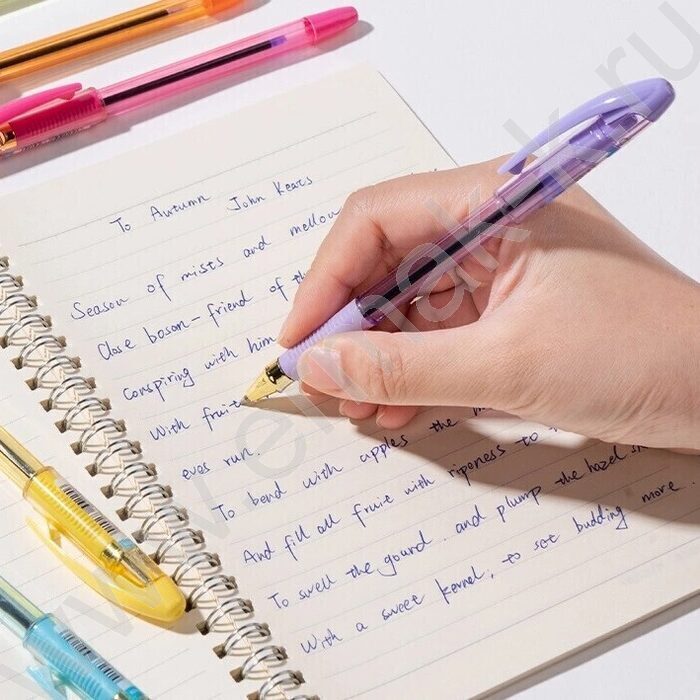 To Autumn John Keats
Season of mists and mellow
Close boson-friend of th
Conspiring with him
With fruit
eves run.
To bend with apples the
And fill all fruit with ripeness to
To swell the gourd. and plump the hazel sh
With a sweet kernel; to set budding more.
www.elmak-k.ru